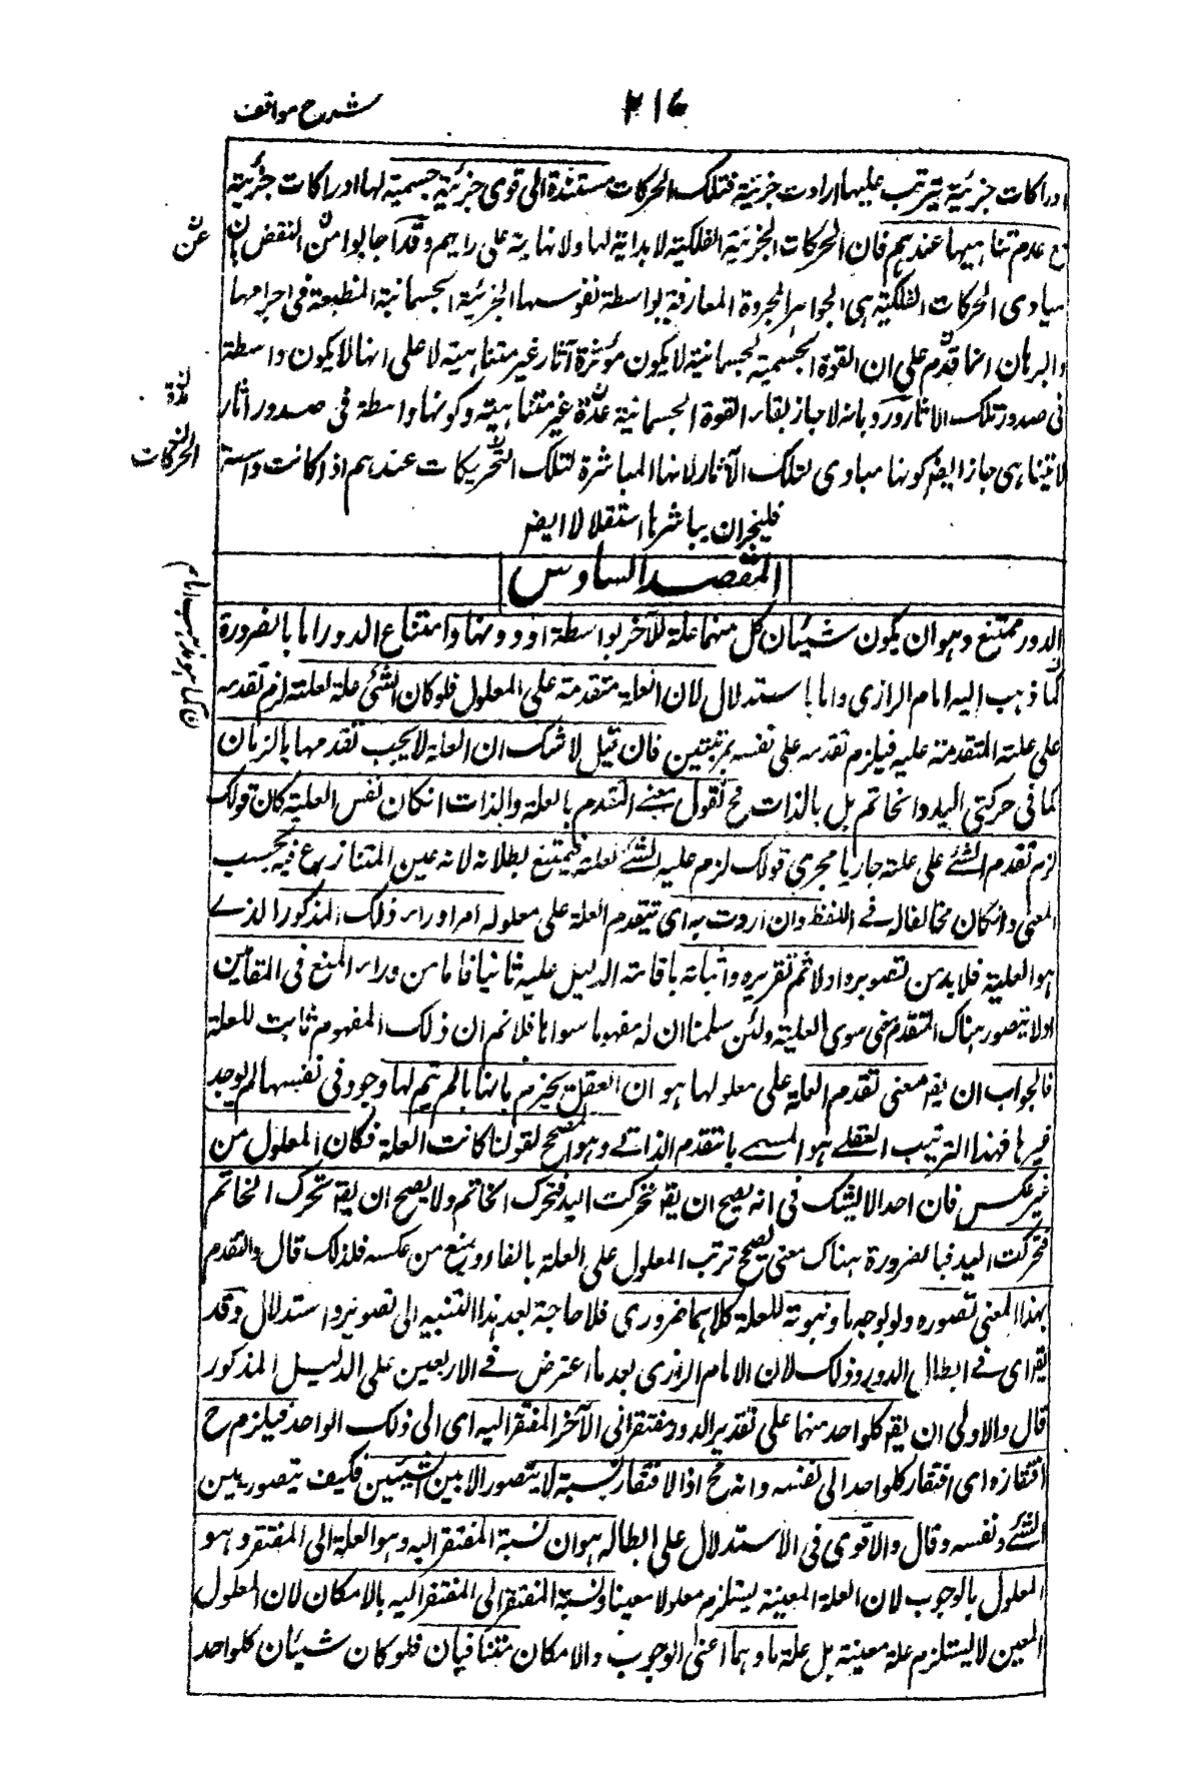 شرح مواقف
۲۱۶
ادراكات جزئية يترتب عليها ارادت جزئية فتلك الحركات مستندة الى قوى جزئية جسمية لها ادراكات جزئية
مع عدم تناهيها عندهم فان الحركات الجزئية الفلكية لا بداية لها ولا نهاية على رايهم وقد اجابوا من النقض بان
عن
مبادى الحركات الفلكية هى الجواهر المجردة المفارقة بواسطة نفوسها الجزئية الجسمانية المنطبعة فى اجرامها
والبرهان انما قام على ان القوة الجسمية الجسمانية لا يكون مؤثرة آثار غير متناهية لا على انها لا يكون واسطة
فى صدور تلك الاثار ورد بانه لما جاز بقاء القوة الجسمانية مدة غير متناهية وكونها واسطة فى صدور اثار
مدة
لا تتناهى جاز ايضا كونها مبادى لتلك الآثار لانها المباشرة لتلك التحريكات عندهم اذا كانت واسطة
الحركات
فليجز ان يباشرها استقلالا ايضا
المقصد السادس
الدور ممتنع وهو ان يكون شيئان كل منهما علة للآخر بواسطة او دونها وامتناع الدور اما بالضرورة
كما ذهب اليه امام الرازى واما باستدلال لان العلة متقدمة على المعلول فلو كان الشئ علة لعلته لزم تقدمه
على علته المتقدمة عليه فيلزم تقدمه على نفسه بمرتبتين فان قيل لا شك ان العلة لا يجب تقدمها بالزمان
كما فى حركتى اليد والخاتم بل بالذات فح نقول معنے التقدم بالعلة والذات انكان نفس العلية كان قولك
لزم تقدم الشئے على علته جاريا مجرى قولك لزم عليه الشئے لعلته فيمتنع بطلانه لانه عين المتنازع فيه بحسب
المعنى وانكان مخالفا له فے اللفظ وان اردت به اى بتقدم العلة على معلوله امرا وراء ذلك المذكور الذے
هو العلية فلا بد من تصويره اولا ثم تقريره واثباته باقامة الدليل عليه ثانيا فانا من وراء المنع فى المقامين
اذ لا يتصور هناك التقدم معنى سوى العلية ولئن سلمنا ان له مفهوما سواها فلا نم ان ذلك المفهوم ثابت للعلة
فالجواب ان يقم معنى تقدم العلة على معلولها هو ان العقل يجزم بانها ما لم يتم لها وجود فى نفسها لم يوجد
غيرها فهذا الترتيب العقلے هو المسمے بالتقدم الذاتے وهو المصحح لقولنا كانت العلة فكان المعلول من
غير عكس فان احدا لا يشك فى انه يصح ان يقم تحركت اليد فتحرك الخاتم ولا يصح ان يقم تحرك الخاتم
فتحركت اليد فبالضرورة هناك معنى يصحح ترتب المعلول على العلة بالفاء ويمنع من عكسه فلذلك قال والتقدم
بهذا المعنى تصوره ولو بوجه ما وثبوته للعلة كلاهما ضرورى فلا حاجة بعد هذا التنبيه الى تصوير واستدلال وقد
يقم اى فے ابطال الدور وذلك لان الامام الرازى بعد ما اعترض فے الاربعين على الدليل المذكور
قال والاولى ان يقم كلواحد منهما على تقدير الدور مفتقر الى الآخر المفتقر اليه اى الى ذلك الواحد فيلزم ح
افتقاره اى افتقار كلواحد الى نفسه وانه مح اذ الافتقار نسبة لا يتصور الا بين الشيئين فكيف يتصور بين
الشئے ونفسه وقال والاقوى فى الاستدلال على ابطاله هو ان نسبة المفتقر اليه وهو العلة الى المفتقر وهو
المعلول بالوجوب لان العلة المعينة يستلزم معلولا معينا ونسبة المفتقر الى المفتقر اليه بالامكان لان المعلول
المعين لا يستلزم علة معينة بل علة ما وهما اعنى الوجوب والامكان متنافيان فلو كان شيئان كلواحد